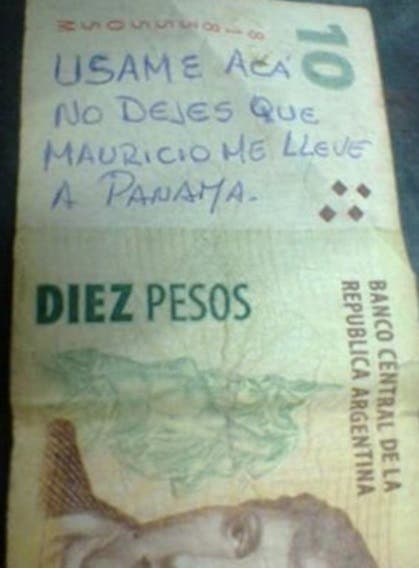 10
USAME ACÁ
NO DEJES QUE
MAURICIO ME LLEVE
A PANAMA.
DIEZ PESOS
BANCO CENTRAL DE LA
REPUBLICA ARGENTINA